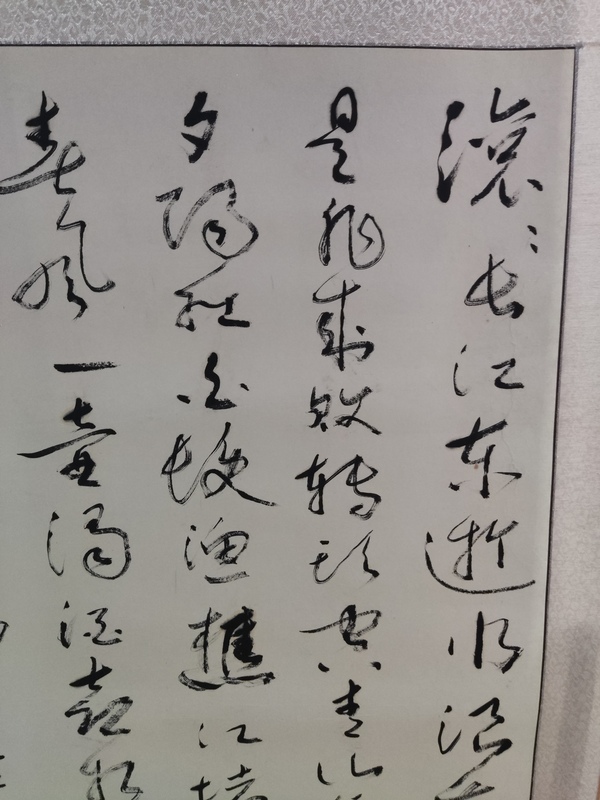 滚滚长江东逝水浪
是非成败转头空青山
夕阳红白发渔樵江渚
春风一壶浊酒喜相